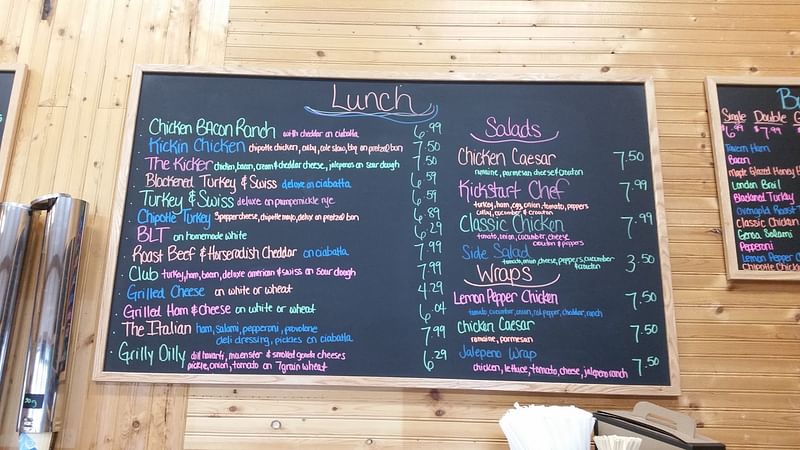 Lunch
Chicken Bacon Ranch with cheddar on ciabatta 6.99
Kickin Chicken chipotle chicken, colby, cole slaw, bbq on pretzel bun 7.50
The Kicker chicken, bacon, cream & cheddar cheese, jalapenos on sour dough 7.50
Blackened Turkey & Swiss deluxe on ciabatta 6.59
Turkey & Swiss deluxe on pumpernickle rye 6.59
Chipotle Turkey 3 pepper cheese, chipotle mayo, deluxe on pretzel bun 6.89
BLT on homemade white 6.29
Roast Beef & Horseradish Cheddar on ciabatta 7.99
Club turkey, ham, bacon, deluxe american & swiss on sour dough 7.99
Grilled Cheese on white or wheat 4.29
Grilled Ham & Cheese on white or wheat 6.04
The Italian ham, salami, pepperoni, provolone 7.99
deli dressing, pickles on ciabatta
Grilly Dilly dill havarti, muenster & smoked gouda cheeses 6.29
pickle, onion, tomato on 7 grain wheat
Salads
Chicken Caesar 7.50
romaine, parmesan cheese & crouton
Kickstart Chef 7.99
turkey, ham, egg, onion, tomato, peppers
colby, cucumber & crouton
Classic Chicken 7.99
tomato, onion, cucumber, cheese
crouton & peppers
Side Salad 3.50
tomato, onion, cheese, peppers, cucumber
& crouton
Wraps
Lemon Pepper Chicken 7.50
tomato, cucumber, onion, red pepper, cheddar, ranch
Chicken Caesar 7.50
romaine, parmesan
Jalapeno Wrap 7.50
chicken, lettuce, tomato, cheese, jalapeno ranch
Single Double
$6.49 $7.99
Tavern Ham
Bacon
Maple Glazed Honey
London Broil
Blackened Turkey
Classic Chicken
Genoa Salami
Pepperoni
Lemon Pepper
Chipotle Chick